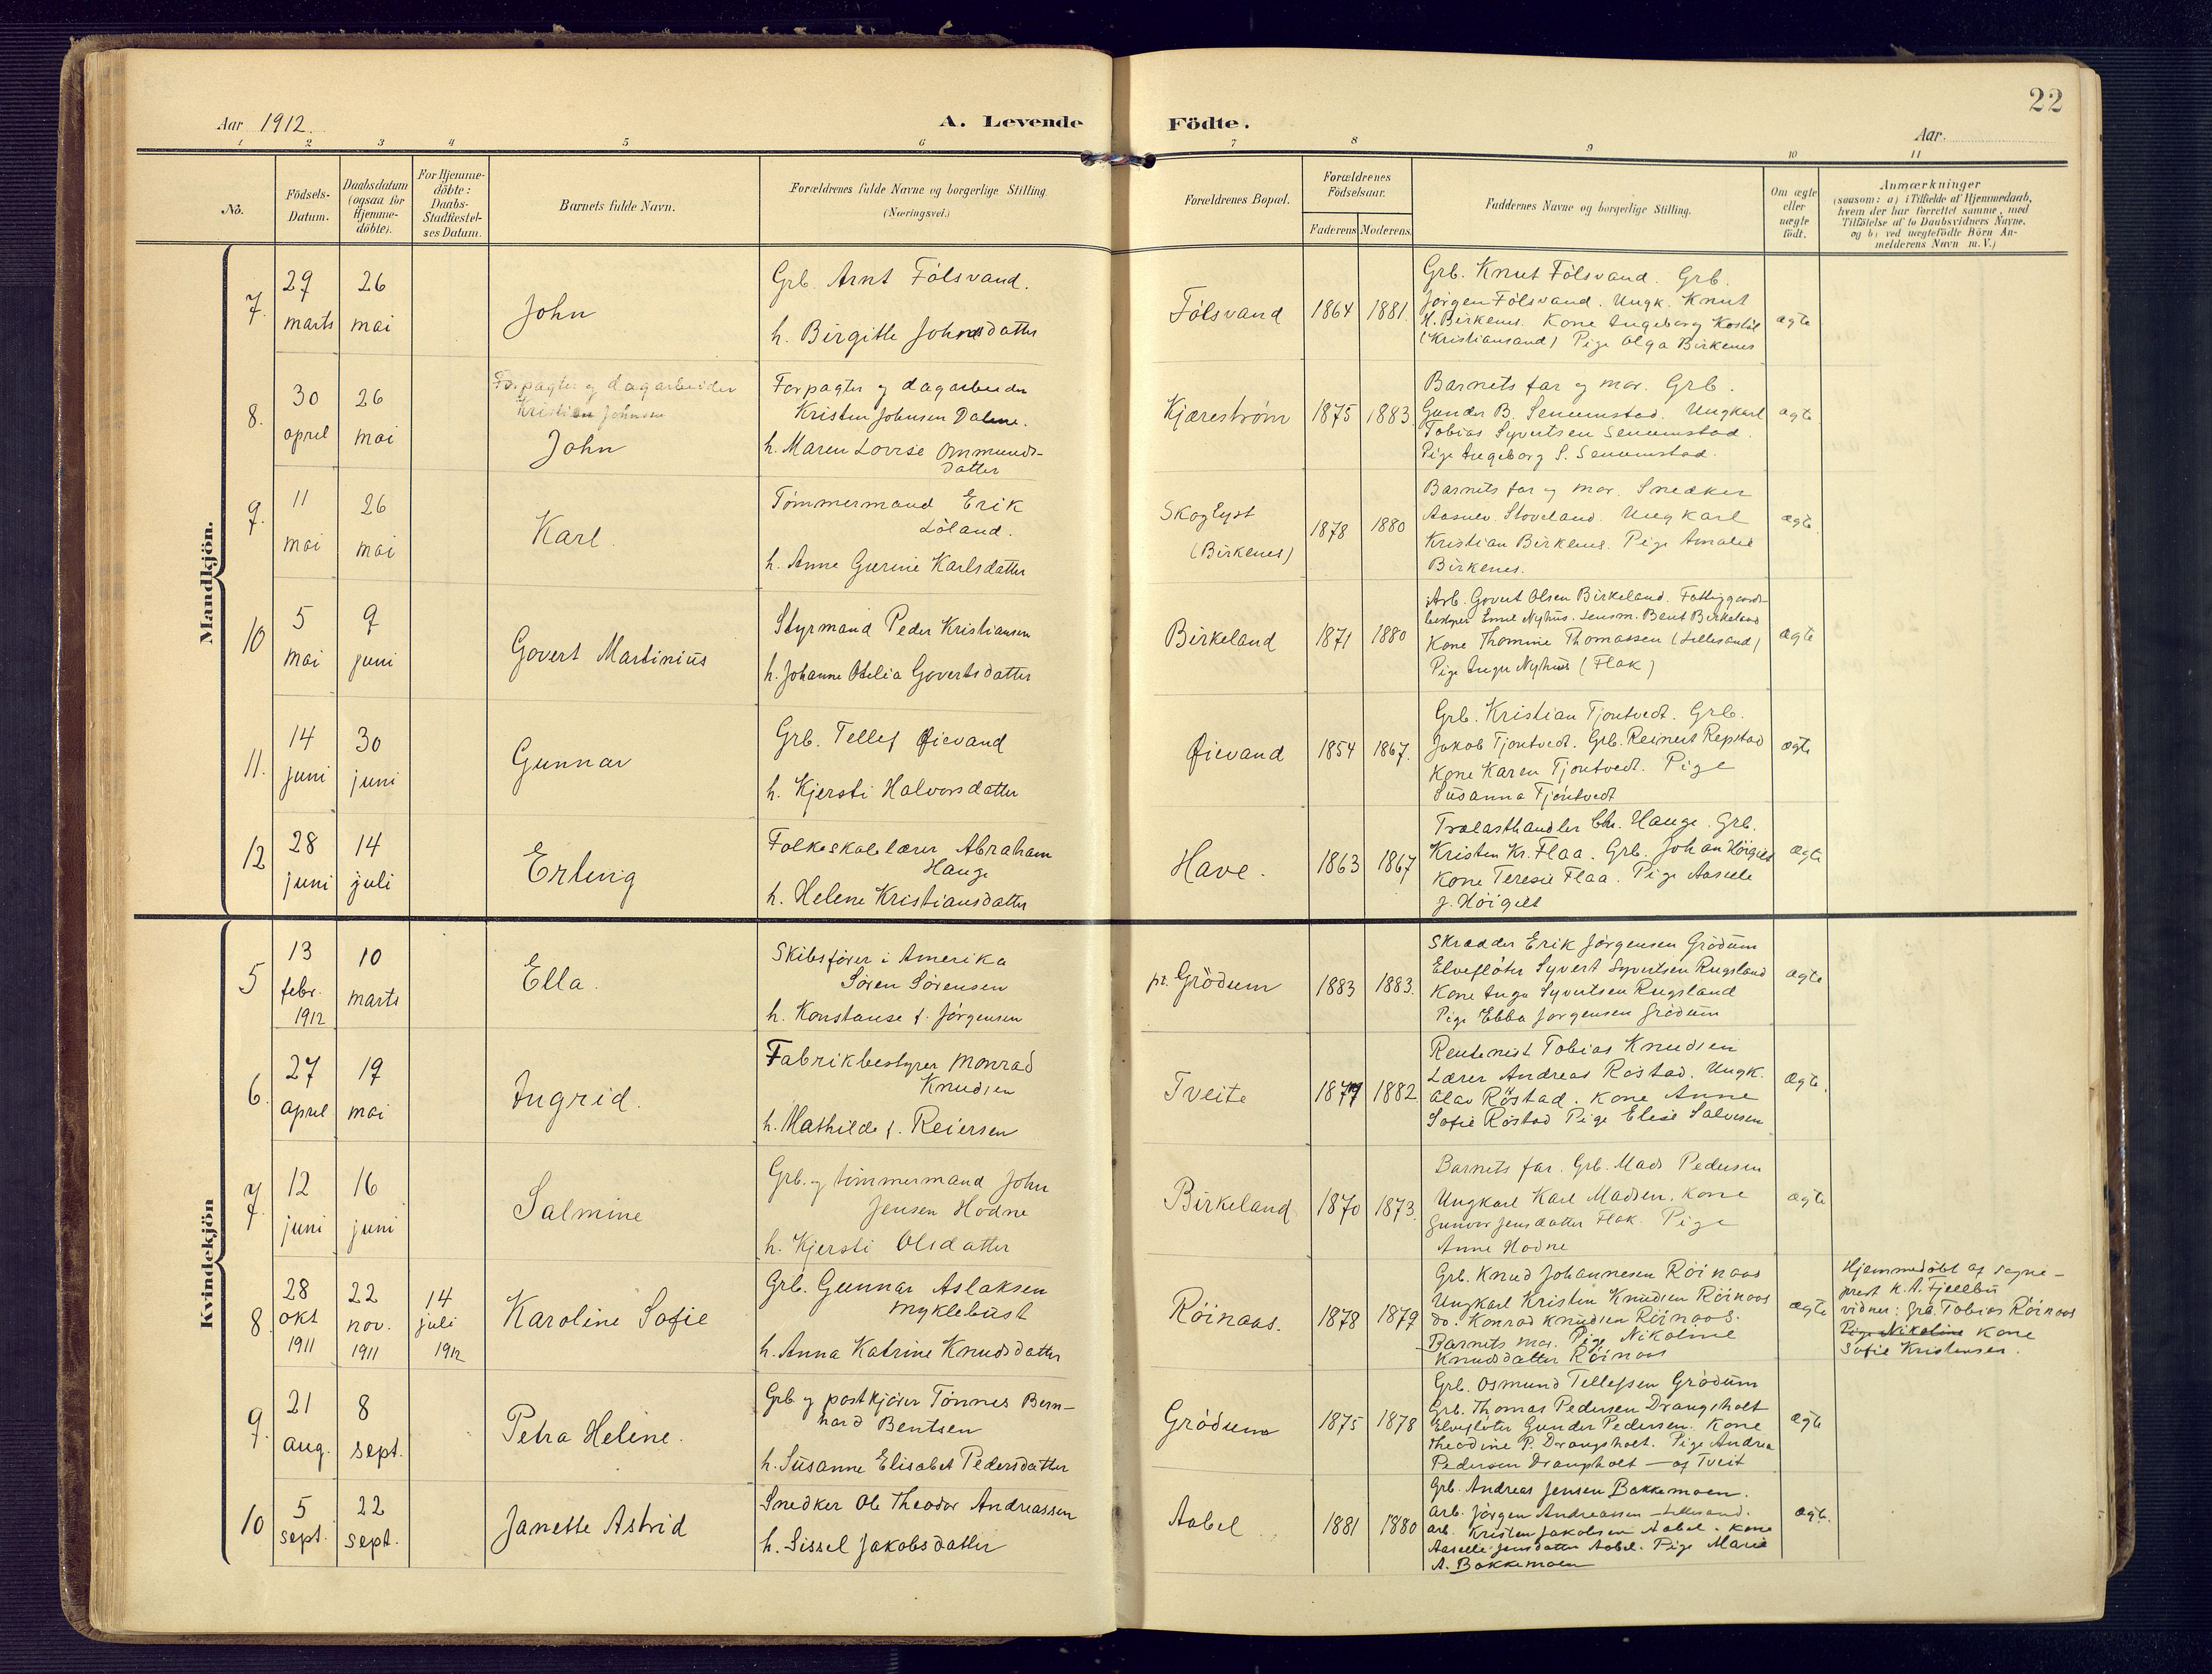 22
Aar 1912.
A. Levende Födte.
Aar
1 2 3 4 5 6 7 8 9 10 11
No.
Födsels-
Datum.
Daabsdatum
(ogsaa for
Hjemme-
döbte).
For Hjemme-
döbte:
Daabs-
Stadfæstel-
ses Datum.
Barnets fulde Navn.
Forældrenes fulde Navne og borgerlige Stilling.
(Næringsvei.)
Forældrenes Bopæl.
Forældrenes
Födselsaar.
Faderens Moderens.
Faddernes Navne og borgerlige Stilling.
Om ægte
eller
uægte
födt.
Anmærkninger
(saasom: a) i Tilfælde af Hjemmedaab,
hvem der har forrettet samme, med
Tilföielse af to Daabsvidners Navne,
og b) ved uægtefödte Börn An-
melderens Navn m. V.)
Mandkjön.
7.
29
marts
26
mai
John
Grb. Arnt Fölsvand.
h. Birgitte Johnsdatter
Fölsvand
1864
1881.
Grb. Knut Fölsvand. Grb.
Jörgen Fölsvand. Ungk. Knut
H. Birkenes. Kone Ingeborg Kostöl
(Kristiansand) Pige Olga Birkenes
ægte
8.
30
april
26
mai
Forpagter og dagarbeider
Kristian Johnsen
John
Forpagter og dagarbeider
Kristen Johnsen Dalene.
h. Maren Lovise Ommunds-
datter
Kjærestrøm
1875
1883.
Barnets far og mor. Grb.
Gunder B. Senumstad. Ungkarl
Tobias Syvertsen Senumstad.
Pige Ingeborg S. Senumstad.
ægte
9.
11
mai
26
mai
Karl.
Tömmermand Erik
Löland.
h. Anne Gurine Karlsdatter
Skoglyst
(Birkenes)
1878
1880
Barnets far og mor. Snedker
Aasulv Stoveland. Ungkarl
Kristian Birkenes. Pige Amalie
Birkenes.
ægte
10
5
mai
9
juni
Govert Martinius
Styrmand Peder Kristiansen
h. Johanne Otelia Govertsdatter
Birkeland
1871
1880
Arb. Govert Olsen Birkeland. Fattiggaards-
bestyrer Emil Nyhus. Lensm. Bent Birkeland
Kone Thomine Thomassen (Lillesand)
Pige Inga Nyhus (Flak)
ægte
11.
14
juni
30
juni
Gunnar
Grb. Tellef Øievand
h. Kjersti Halvorsdatter
Øievand
1854
1867.
Grb. Kristian Tjontvedt. Grb.
Jakob Tjontvedt. Grb. Reinert Repstad
Kone Karen Tjontvedt. Pige
Susanna Tjöntvedt
ægte
12
28
juni
14
juli
Erling
Folkeskolelærer Abraham
Hauge
h. Helene Kristiansdatter
Have.
1863
1867
Trælasthandler Chr. Hauge. Grb.
Kristen Kr. Flaa. Grb. Johan Höigilt
Kone Teresie Flaa. Pige Aaselle
J. Höigilt
ægte
Kvindekjön
5
13
febr.
1912
10
marts
Ella.
Skibsförer i Amerika
Sören Sörensen
h. Konstanse f. Jörgensen
pt. Grödum
1883
1883.
Skrædder Erik Jörgensen Grödum
Elveflöter Syvert Syvertsen Rugsland
Kone Inga Syvertsen Rugsland
Pige Ebba Jorgensen Grödum
ægte
6.
27
april
19
mai
Ingrid.
Fabrikbestyrer Monrad
Knudsen
h. Mathilde f. Reiersen
Tveite
1877
1882
Rentenist Tobias Knudsen
Lærer Andreas Rostad. Ungk.
Olav Röstad. Kone Anne
Sofie Röstad Pige Elise Salvesen
ægte.
7.
12
juni
16
juni
Salmine
Grb. og tömmermand John
Jensen Hodne
h. Kjersti Olsdatter
Birkeland
1870
1873.
Barnets far. Grb. Mads Pedersen
Ungkarl Karl Madsen. Kone
Gunvor Jensdatter Flak. Pige
Anne Hodne
ægte
8.
28
okt
1911
22
nov.
1911
14
juli
1912
Karoline Sofie
Grb. Gunnar Aslaksen
Myklebust
h. Anna Katrine Knudsdatter
Röinaas.
1878
1879
Grb. Knud Johannesen Röinaas
Ungkarl Kristen Knudsen Röinaas
do. Konrad Knudsen Röinaas.
Barnets mor. Pige Nikoline
Knudsdatter Röinaas
ægte
Hjemmedöbt af sogne-
prest K. A. Fjellbu
vidner: Grb. Tobias Röinaas
Pige Nikoline Kone
Sofie Kristensen.
9.
21
aug.
8
sept.
Petra Helene.
Grb og postkjörer Tönnes Bern-
hard Bentsen
h. Susanne Elisabet Pedersdatter
Grödum
1875
1878
Grb. Osmund Tellefsen Grödum
Grb. Thomas Pedersen Drangsholt
Elveflöter Gunder Pedersen. Kone
Theodine P. Drangsholt. Pige Andrea
Pedersen Drangsholt — af Tveit
ægte
10
5
sept.
22
sept.
Janette Astrid
Snedker Ole Theodor Andreassen
h. Sissel Jakobsdatter
Aabel
1881
1880
Grb. Andreas Jensen Bakkemoen.
Arb. Jörgen Andreassen — Lillesand.
arb. Kristen Jakobsen Aabel. Kone
Aaselle Jensdatter Aabel. Pige Marie
A. Bakkemoen
ægte.